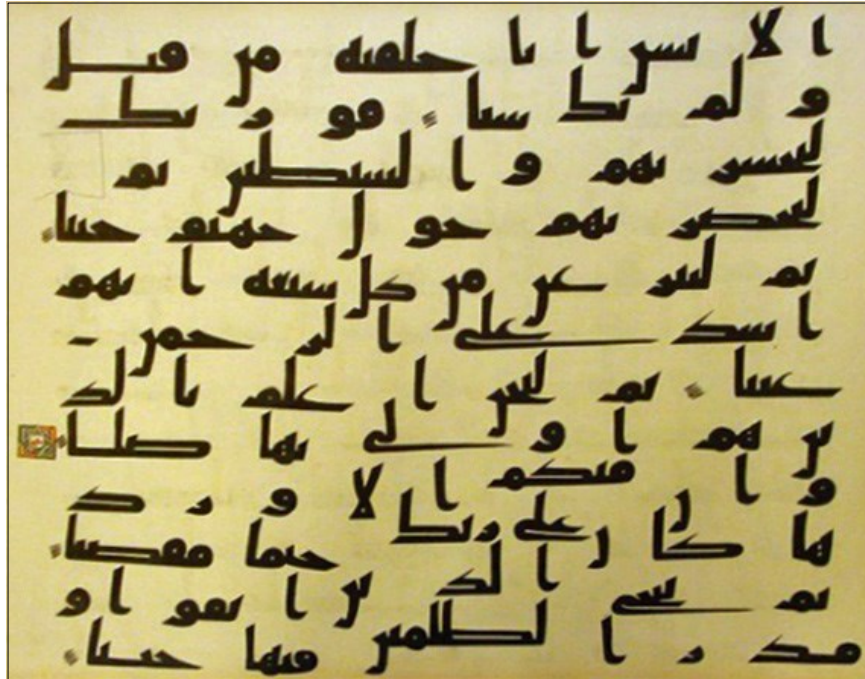 الانسن انا خلقنه من قبل
ولم يك شيا فور بك
لنحشر نهم والشيطين ثم
لنحضر نهم حول جهنم جثيا
ثم لننز عن من كل شيعه ايهم
اشد على الرحمن
عتيا ثم لنحن اعلم بالذ
ين هم اولى بها صليا
وان منكم الا ورد
ها كان على ربك حتما مقضيا
ثم ننجي الذين اتقوا و
نذر الظلمين فيها جثيا